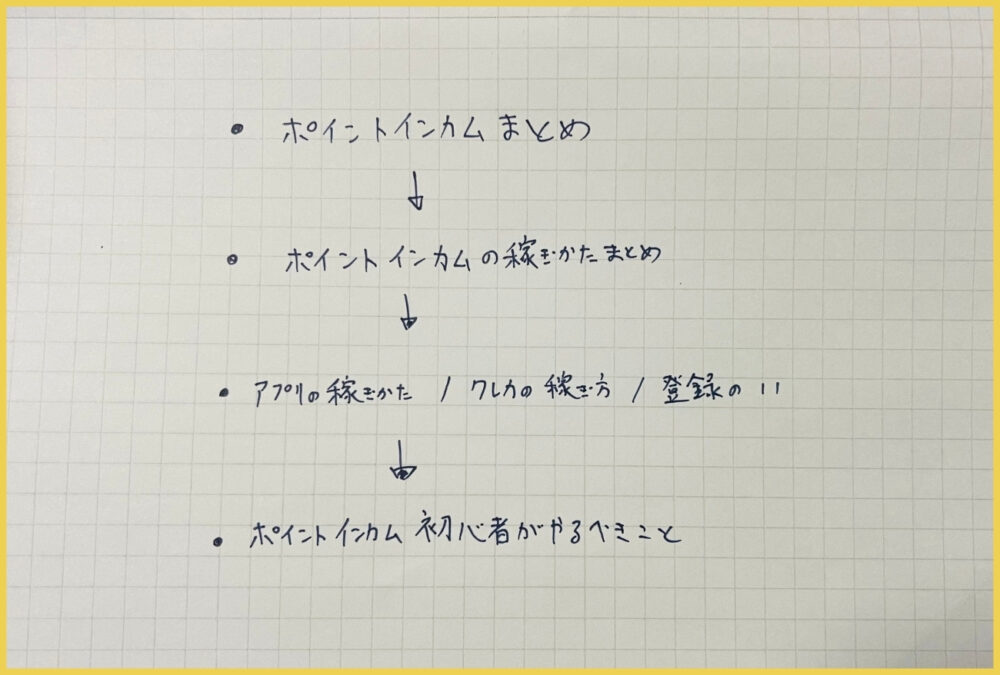 • ポイントインカムまとめ
↓
• ポイントインカムの稼ぎかたまとめ
↓
• アプリの稼ぎかた / クレカの稼ぎ方 / 登録の 〃
↓
• ポイントインカム初心者がやるべきこと